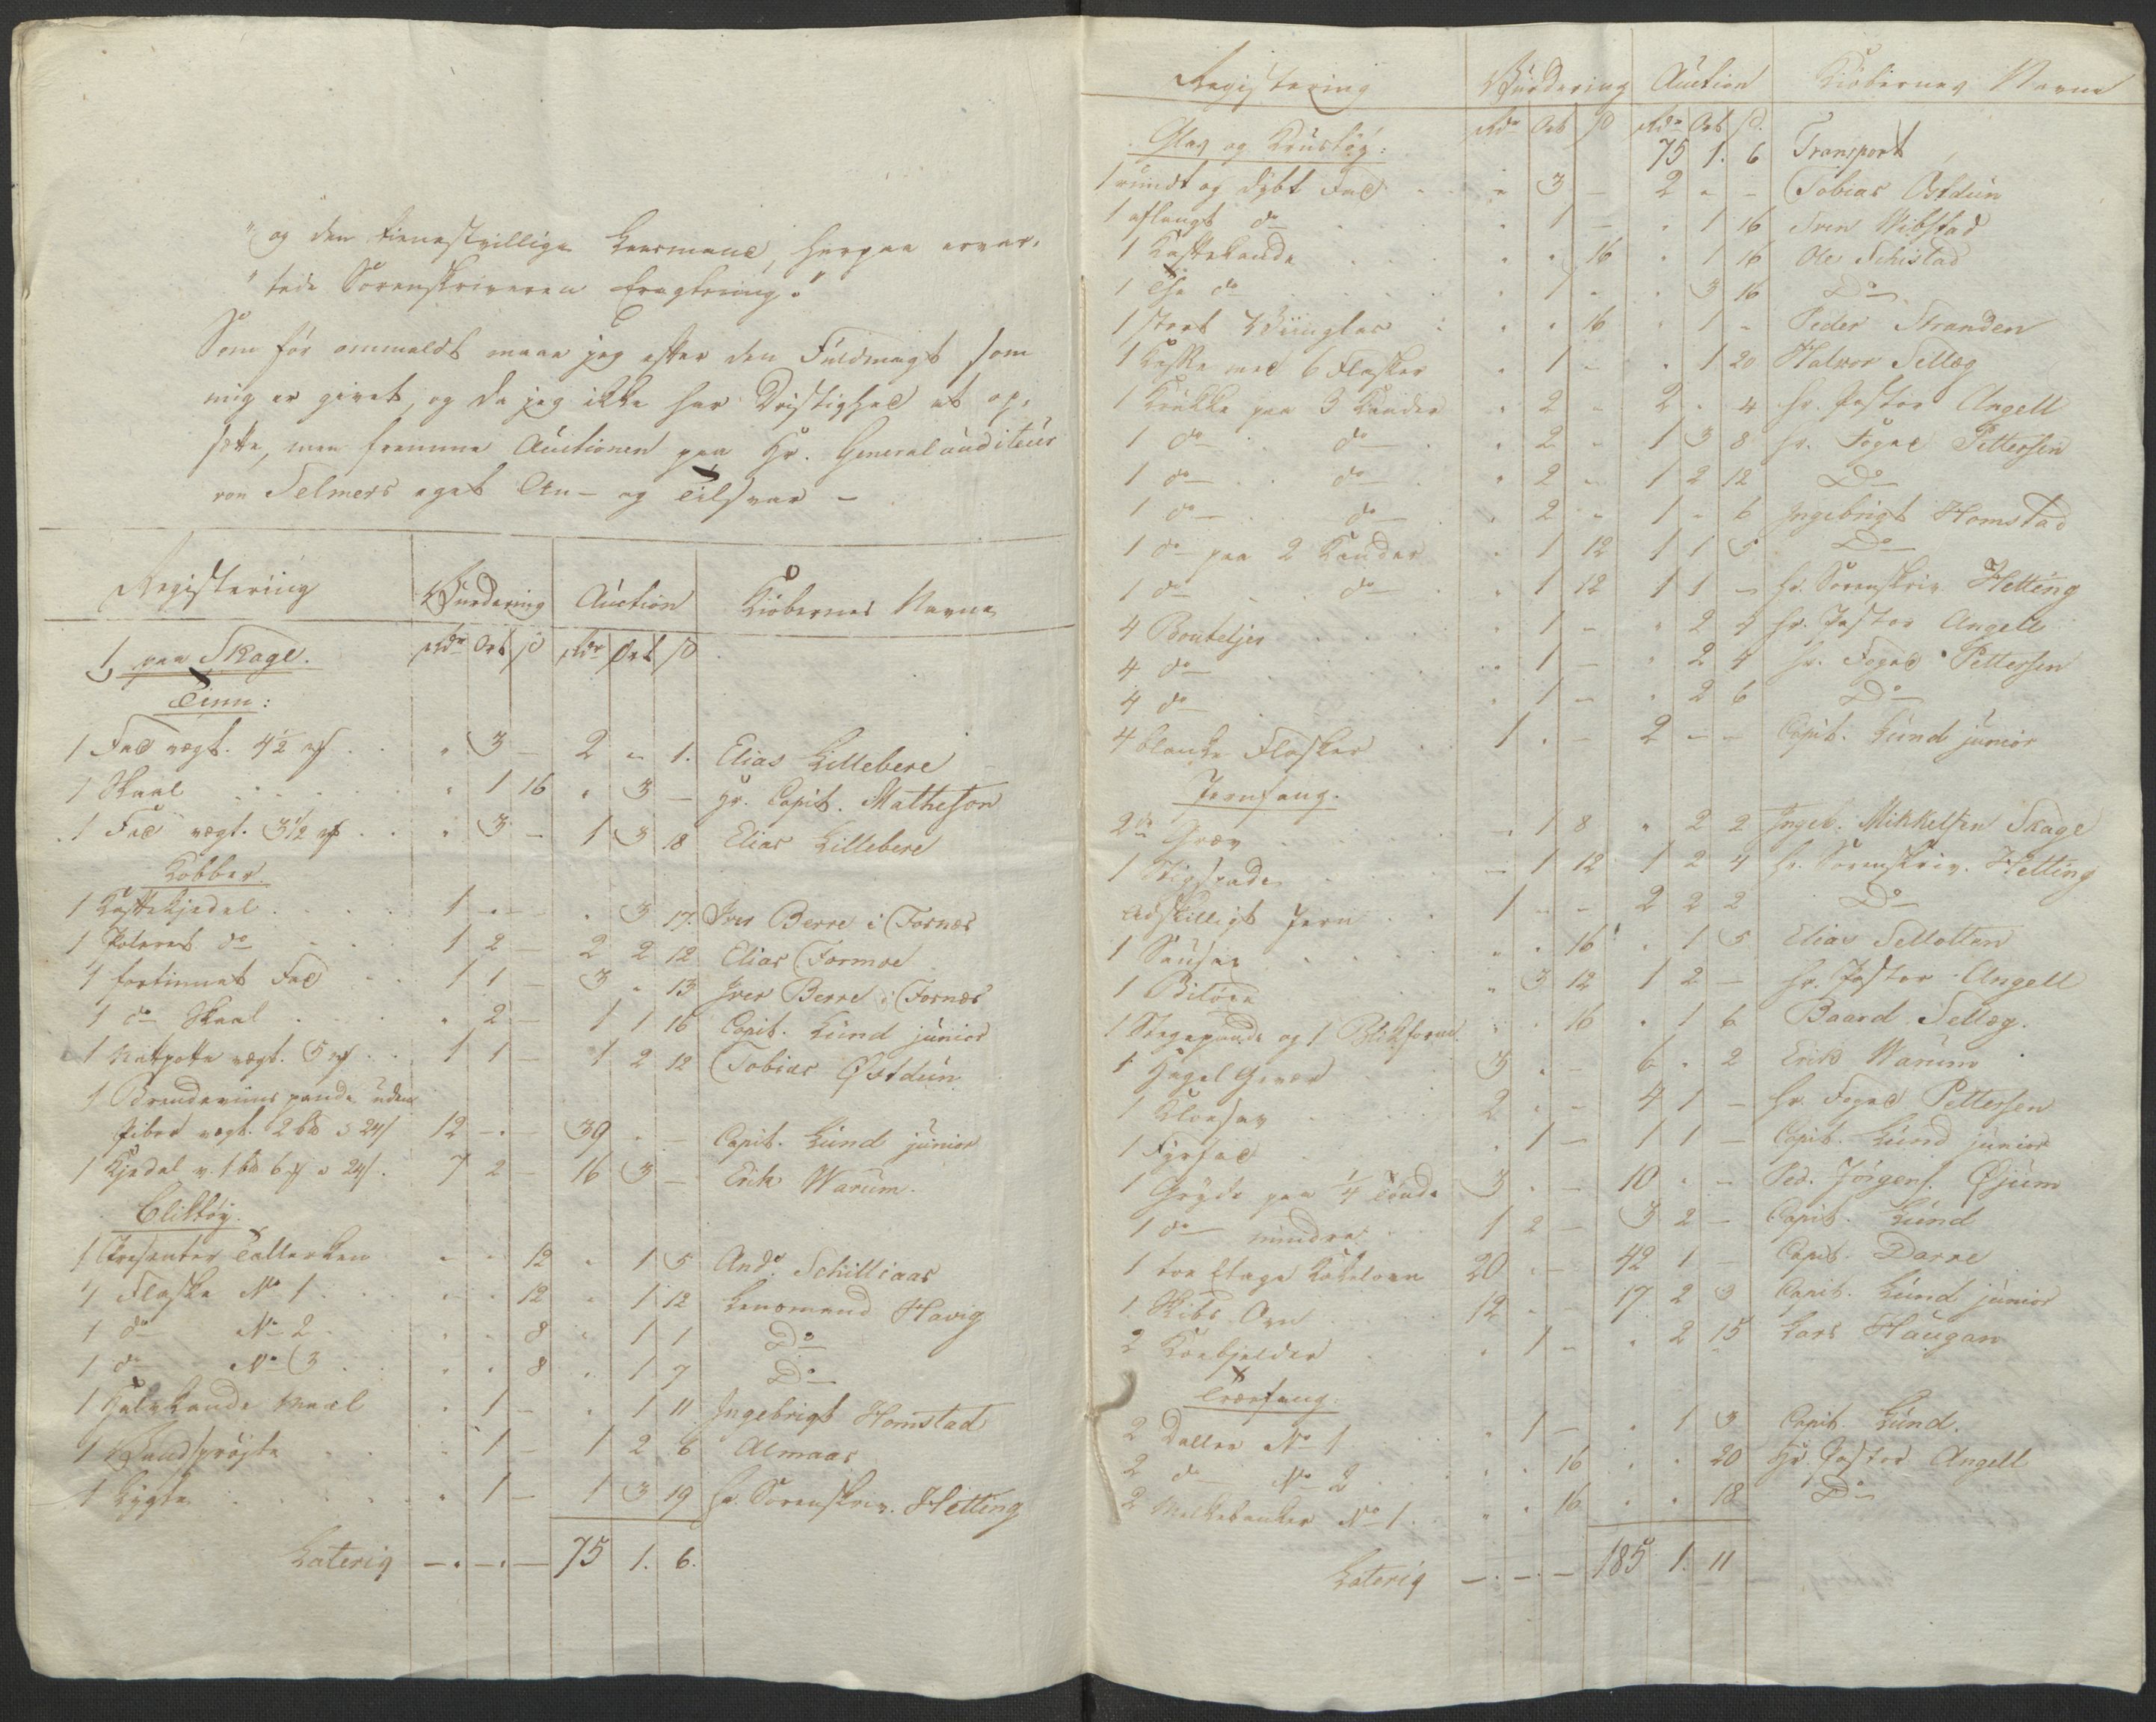 "og den tienestvillige Lensmand, herpaa erver,
"tede Sorenskriveren Eragtning."
Som før ommeldt maae jeg efter den Fuldmagt som
mig er givet, og da jeg ikke har Dristighed at op,
sætte, men fremme Auctionen paa Hr. Generalauditeur
von Selmers eget An- og Tilsvar -
Registering Wurdering Auction Kiøbernes Navne
1, paa Skage. Rdr Ort s Rdr Ort s
Tinn:
1 Fad vægt. 4 1/2 " 3 - 2 " 1. Elias Lillebere
1 Skaal " 1 16 " 3 - Hr. Capit. Matheson
1 Fad vægt. 3 1/2 " 3 - 1 3 18 Elias Lillebere
Kobber.
1 Kaffekjedel 1 - - " 3 17. Iver Berre i Fosnæs
1 Poleret do 1 2 - 2 2 12 Elias Formoe
1 fortinnet Fad 1 1 - 3 " 13 Iver Berre i Fosnæs
1 do Skaal " 2 - 1 1 16 Capit. Lund junior
1 Natpotte vægt. 5 1 1 - 1 2 12 Tobias Østdun
1 Brændeviins pande uden
Piber vægt. 2 24 12 - - 39 - - Capit. Lund junior
1 Kjedel v. 1 6 24 7 2 - 16 3 - Erik Warum.
Bliktøy.
1 Presenter Tallerken - - 12 " 1 5 Andr. Schilliaas
1 Flaske No 1 " " 12 " 1 12 Lensmand Havig
1 do No 2 " " 8 " 1 1 Do
1 do No 3 " " 8 " 1 7 Do
1 Halvkande Maal " 1 - " 1 11 Ingebrigt Homstad
1 Haandsprøjte " 1 - 1 2 6 Almaas
1 Lygte " 1 - 1 3 19 Hr. Sorenskriv. Hetting
Lateris - - - 75 1. 6.
Registering Wurdering Auction Kiøbernes Navne
Rdr Ort s Rdr Ort s.
Glas og Kruustøy: 75 1. 6 Transport
1 rundt og dybt Fad " 3 - 2 " - Tobias Østdun
1 aflangt do " 1 - " 1 16 Sven Vibstad
1 Kaffekande " " 16 " 1 16 Ole Schistad
1 The do " 1 - " 3 16 Do
1 stort Viinglas " " 16 " 1 - Peder Stranden
1 Kasse med 6 Flasker " 1 - " 1 20 Halvor Sellæg
1 Krukke paa 3 Kander " 2 - 2 " 4 Hr. Pastor Angell
1 do do " 2 - 1 3 8 Hr. Foged Pettersen
1 do do " 2 - 1 2 12 Do
1 do do " 2 - 1 " 6 Ingebrigt Homstad
1 do paa 2 Kander " 1 12 1 1 5 Do
1 do do " 1 12 1 1 - Hr. Sorenskriv. Hetting
4 Bouteljer " 1 - " 2 4 Hr. Pastor Angell
4 do " 1 - " 2 4 Hr. Foged Pettersen
4 do " 1 - " 2 6 Do
4 blanke Flasker 1 " - 2 - - Capit. Lund junior
Jernfang.
2de Græv " 1 8 " 2 2 Ingeb. Mikkelsen Skage
1 - 1 12 1 2 4 Hr. Sorenskriv. Hetting
Adskilligt Jern 1 - - 2 2 2 Do
1 " " 16 " 1 5 Elias Sellotten
1 " 3 12 1 2 - Hr. Pastor Angell
1 Stegepande og 1 Blikform " " 16 " 1 6 Baard Sellæg.
1 Hagel Gevær 3 " - 6 " 2 Erik Warum
1 2 " - 4 1 - Hr. Foged Pettersen
1 Fyrfad " 1 - 1 1 - Capit. Lund junior
1 Gryde paa 1/4 Tønde 3 " - 10 " - Ped. Jörgens. Øjum
1 do mindre 1 2 - 3 2 - Capit. Lund
1 toe Etage Kakelovn 20 " - 42 1 - Capit. Darre
1 Skibs Ovn 12 " - 17 2 3 Capit. Lund junior
2 Koebjelder " 1 - " 2 15 Lars Haugan
Træefang.
2 Daller No 1 " 1 - " 1 3 Capit. Lund.
2 do No 2 " " 16 " " 20 Hr. Pastor Angell
2 Melkebunker No 1 " " 16 " " 18 Do
Lateris - - - 185 1. 11